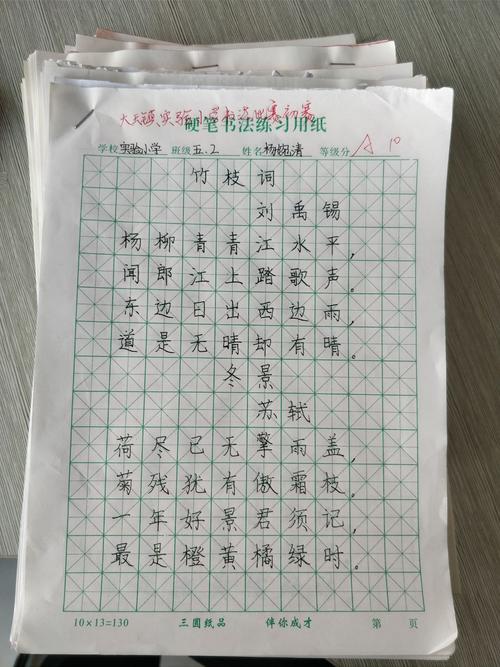 大天镇实验小学书法比赛初赛
硬笔书法练习用纸
学校实验小学 班级五.2 姓名杨婉清 等级分A 10
竹枝词
刘禹锡
杨柳青青江水平，
闻郎江上踏歌声。
东边日出西边雨，
道是无晴却有晴。
冬景
苏轼
荷尽已无擎雨盖，
菊残犹有傲霜枝。
一年好景君须记，
最是橙黄橘绿时。
10×13=130 三圆纸品 伴你成才 第 页